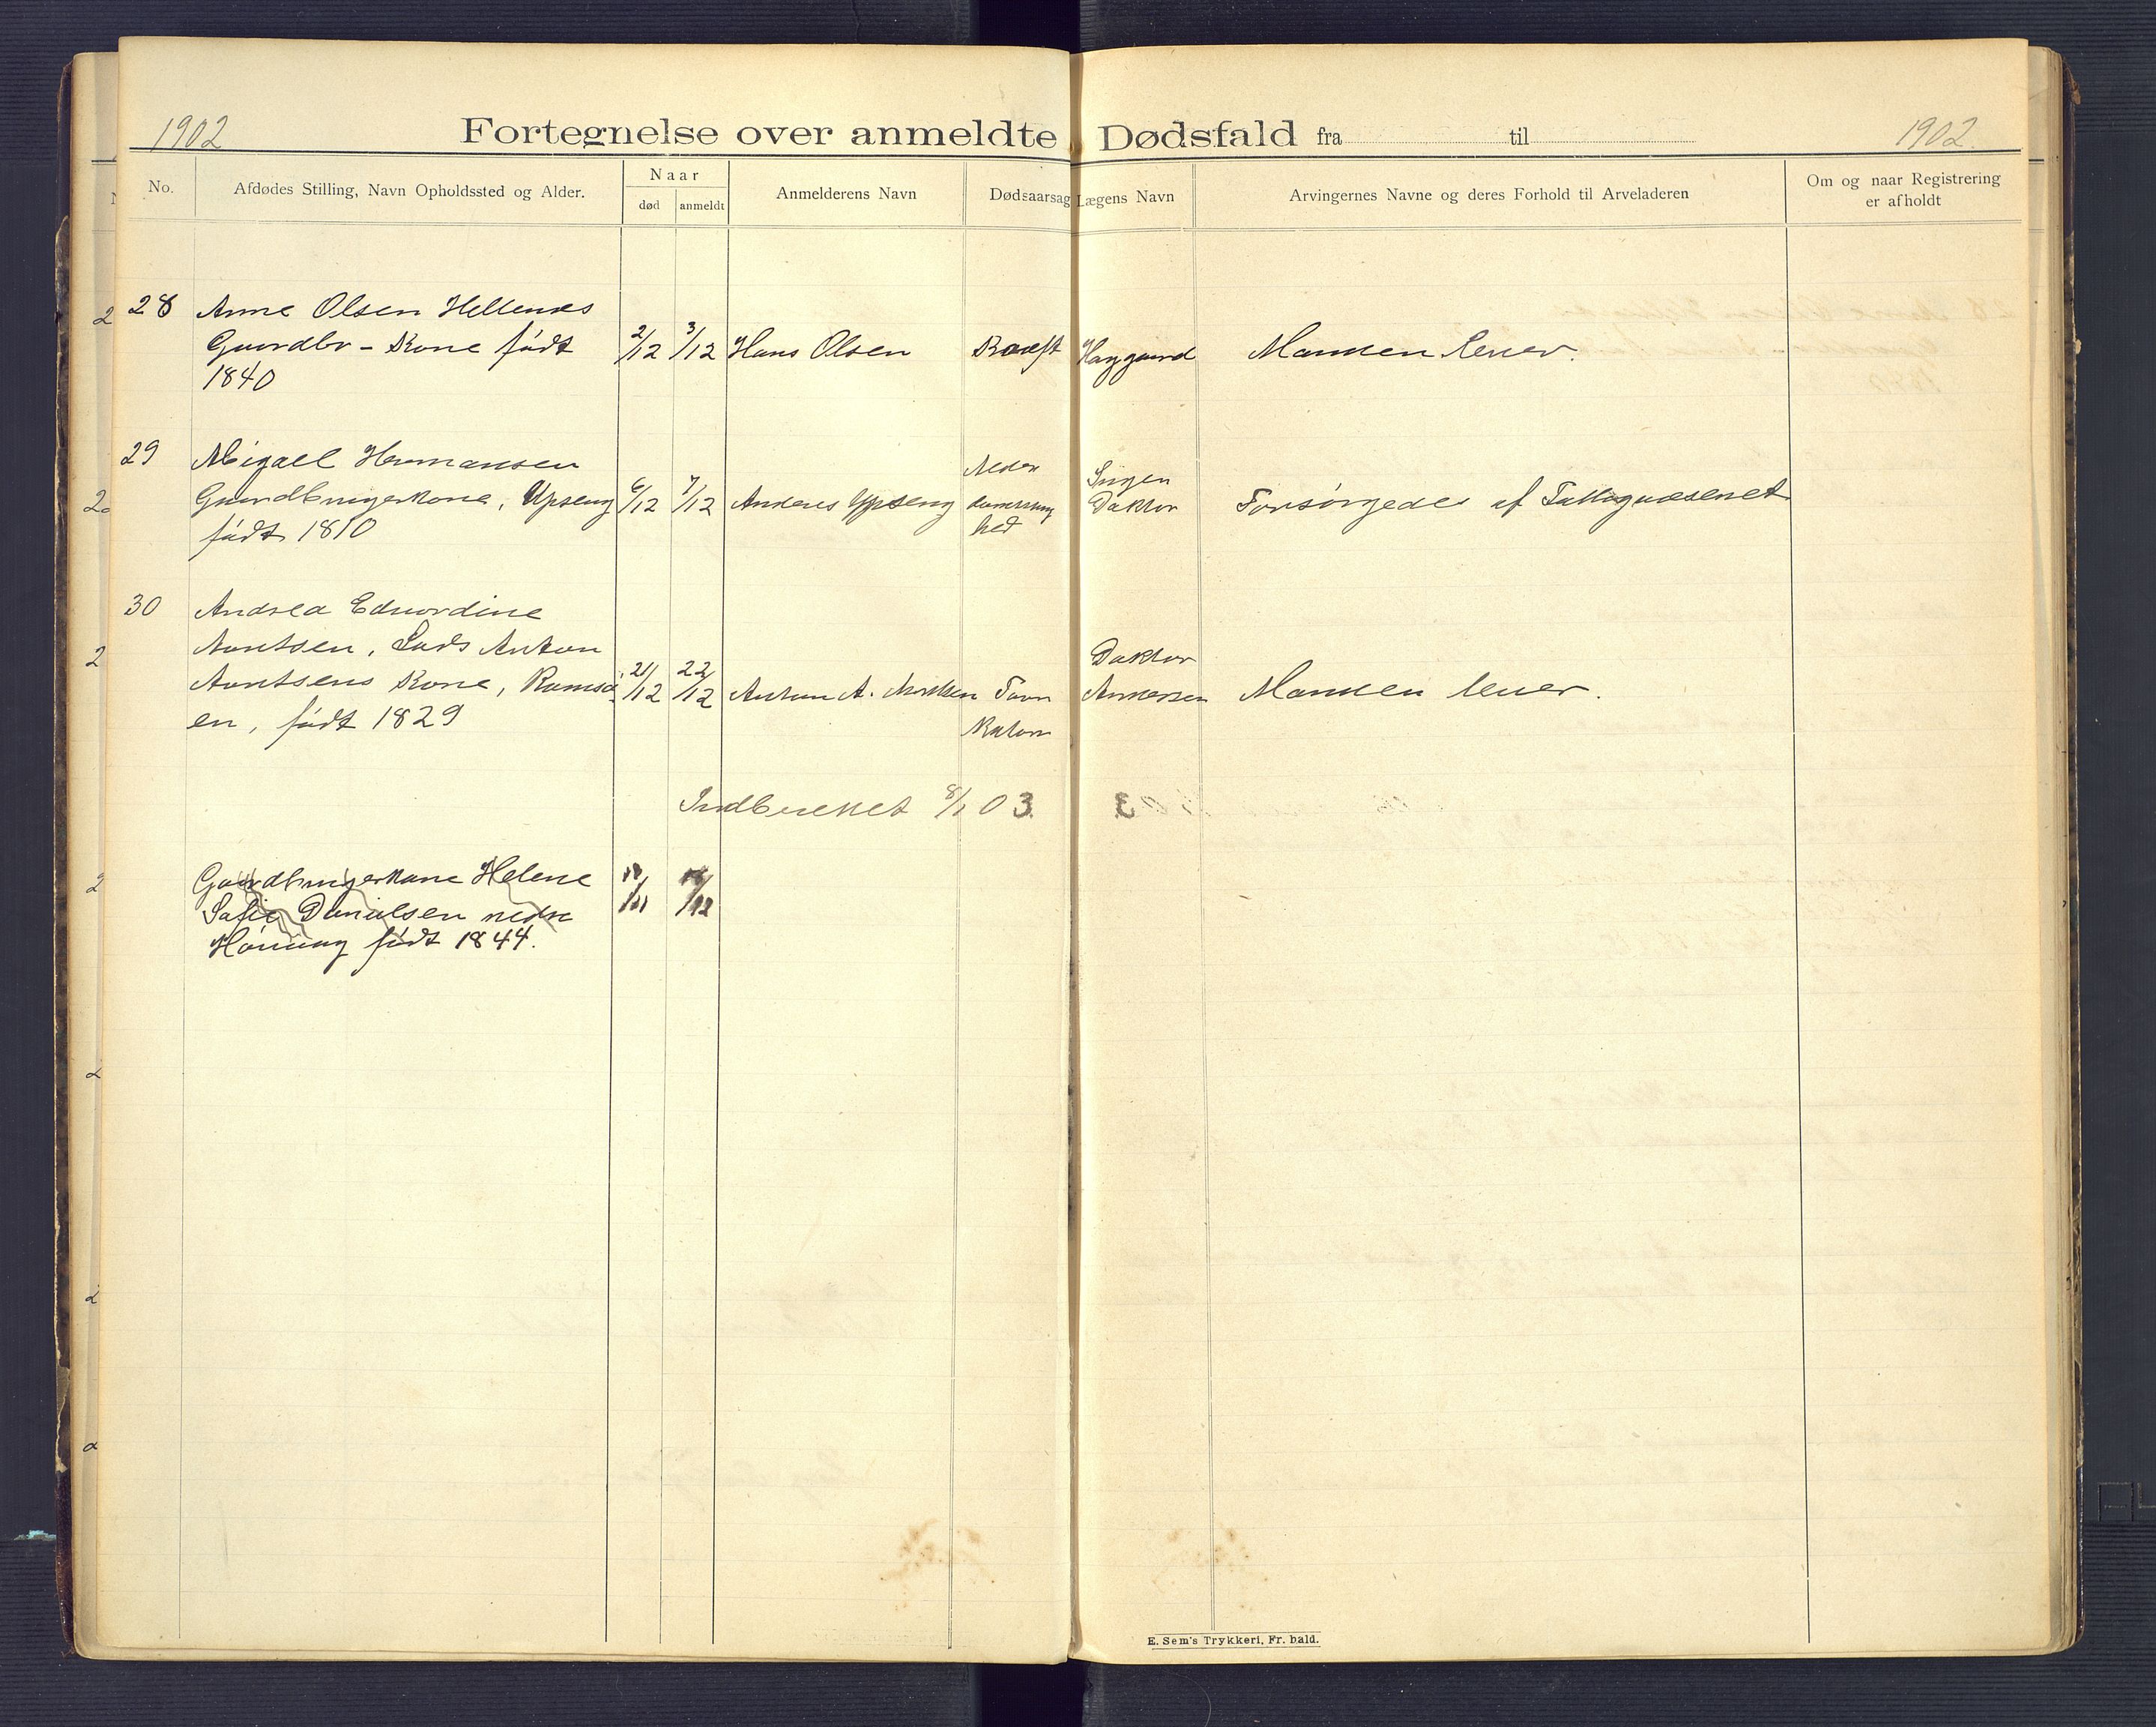 1902
Fortegnelse over anmeldte Dødsfald fra til
1902.
No.
Afdødes Stilling, Navn Opholdssted og Alder.
Naar
død
anmeldt
Anmelderens Navn
Dødsaarsag
Lægens Navn
Arvingernes Navne og deres Forhold til Arveladeren
Om og naar Registrering
er afholdt
28 Anne Olsen Hellenes
Gaardbr - Kone født 2/12 3/12 Hans Olsen Kræft Haggaard Manden lever.
1840
29 Abigael Hermansen
Gaardbrugerkone, Upseng 6/12 7/12 Anderes Upseng
født 1810
Alder
domssvag
hed
Ingen
Doktor
Forsørgedes af Fattigvæsenet
30 Andrea Edvardine
Arntsen, Lods Anton
Arntsens Kone, Ramsø
en, født 1829
21/12 22/12 Anton A. Arntsen
Tarm
Katarr
Doktor
Andersen
Manden lever.
Indberettet 8/1 03
Gaardbrugerkone Helene
Sofie Danielsen nedre
født 1844.
E. Sem's Trykkeri, Fr. hald.